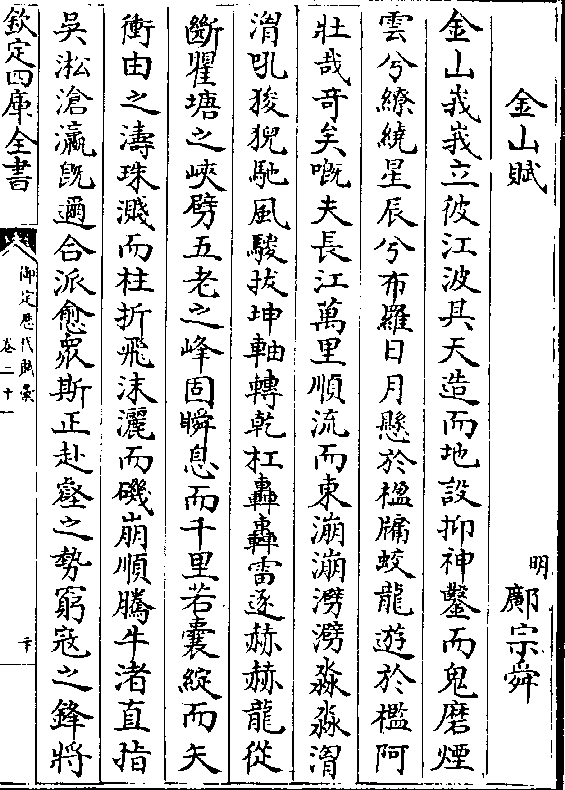 金山賦
明 鄺宗舜
金山峩峩立彼江波具天造而地設抑神鑿而鬼磨煙
雲兮繚繞星辰兮布羅日月懸於楹牖蛟龍遊於檻阿
壯哉奇矣嘅夫長江萬里順流而東漰漰淜淜淼淼渭
渭吼狻猊馳風駿拔坤軸轉乾杠轟轟雷逐赫赫龍從
斷瞿塘之峽劈五老之峰固瞬息而千里若囊綻而矢
衝由之濤珠濺而柱折飛沫灑而磯崩順騰牛渚直指
吳淞滄瀛旣邇合派愈衆斯正赴壑之勢窮寇之鋒將
欽定四庫全書
御定歷代賦彙
卷二十一